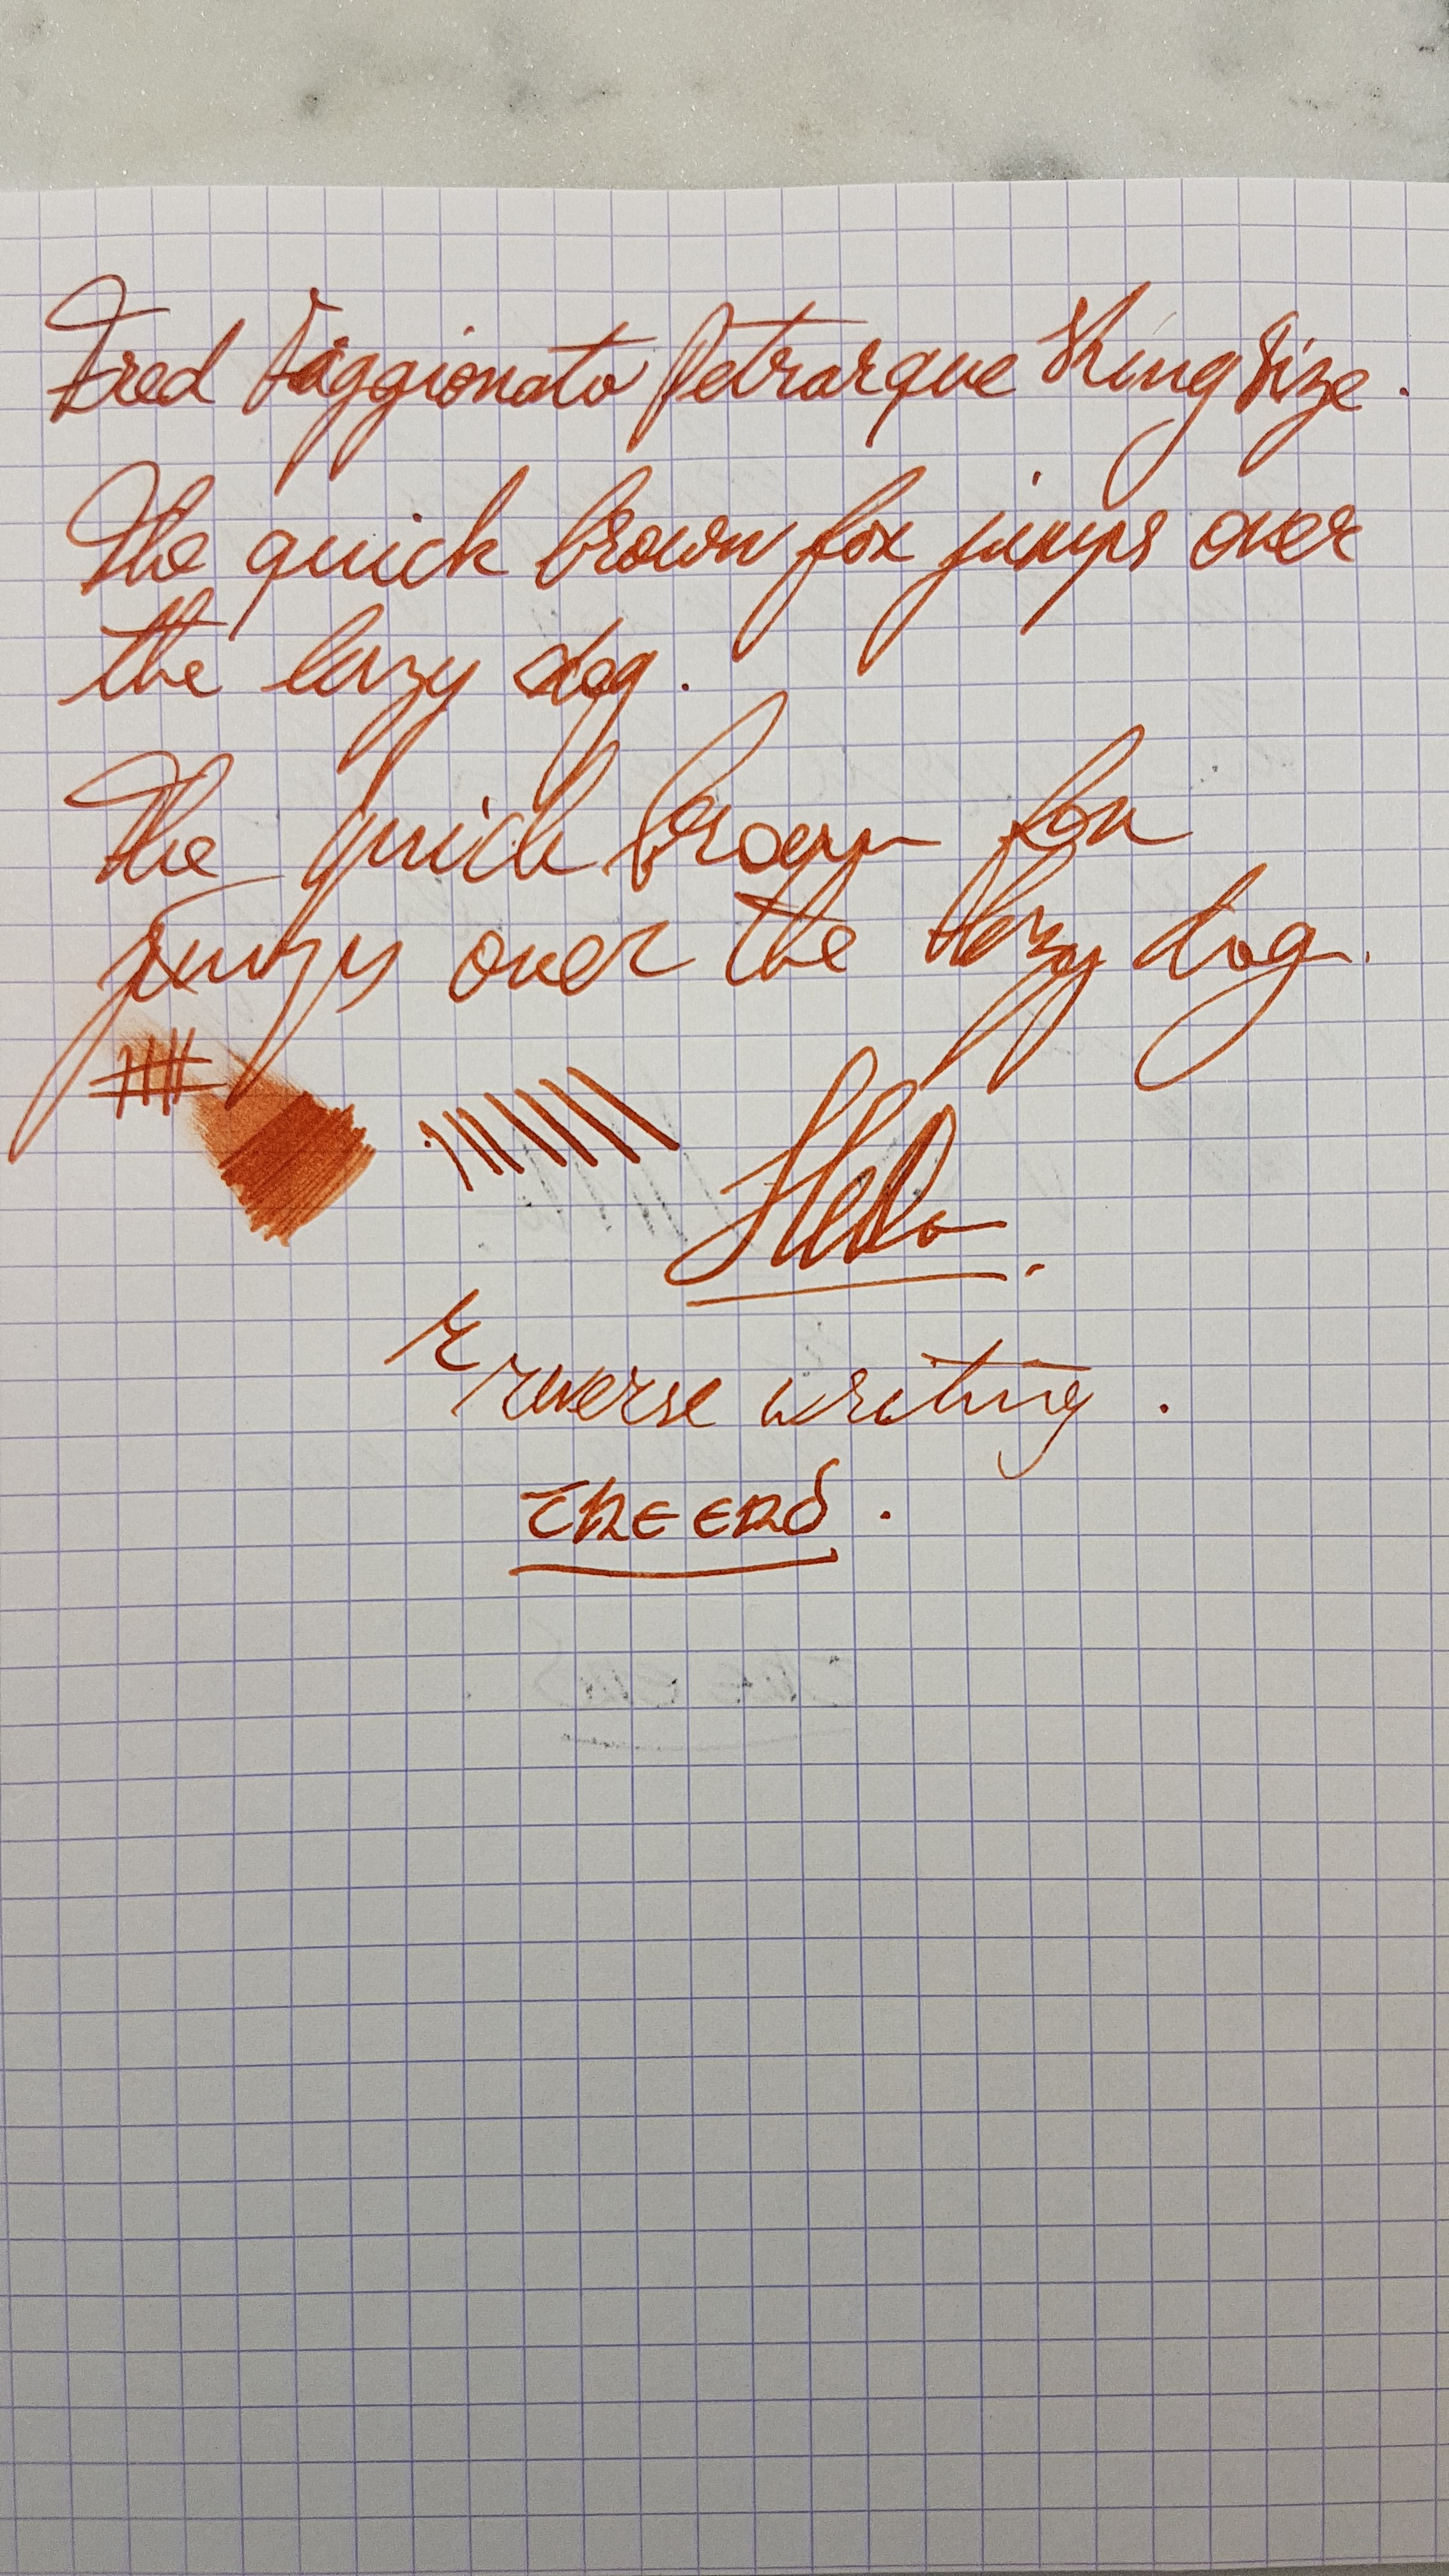 Fred Faggionato Petrarque King Size.
The quick brown fox jumps over
the lazy dog.
The quick brown fox
jumps over the lazy dog.
Hello.
reverse writing.
CHEERS.